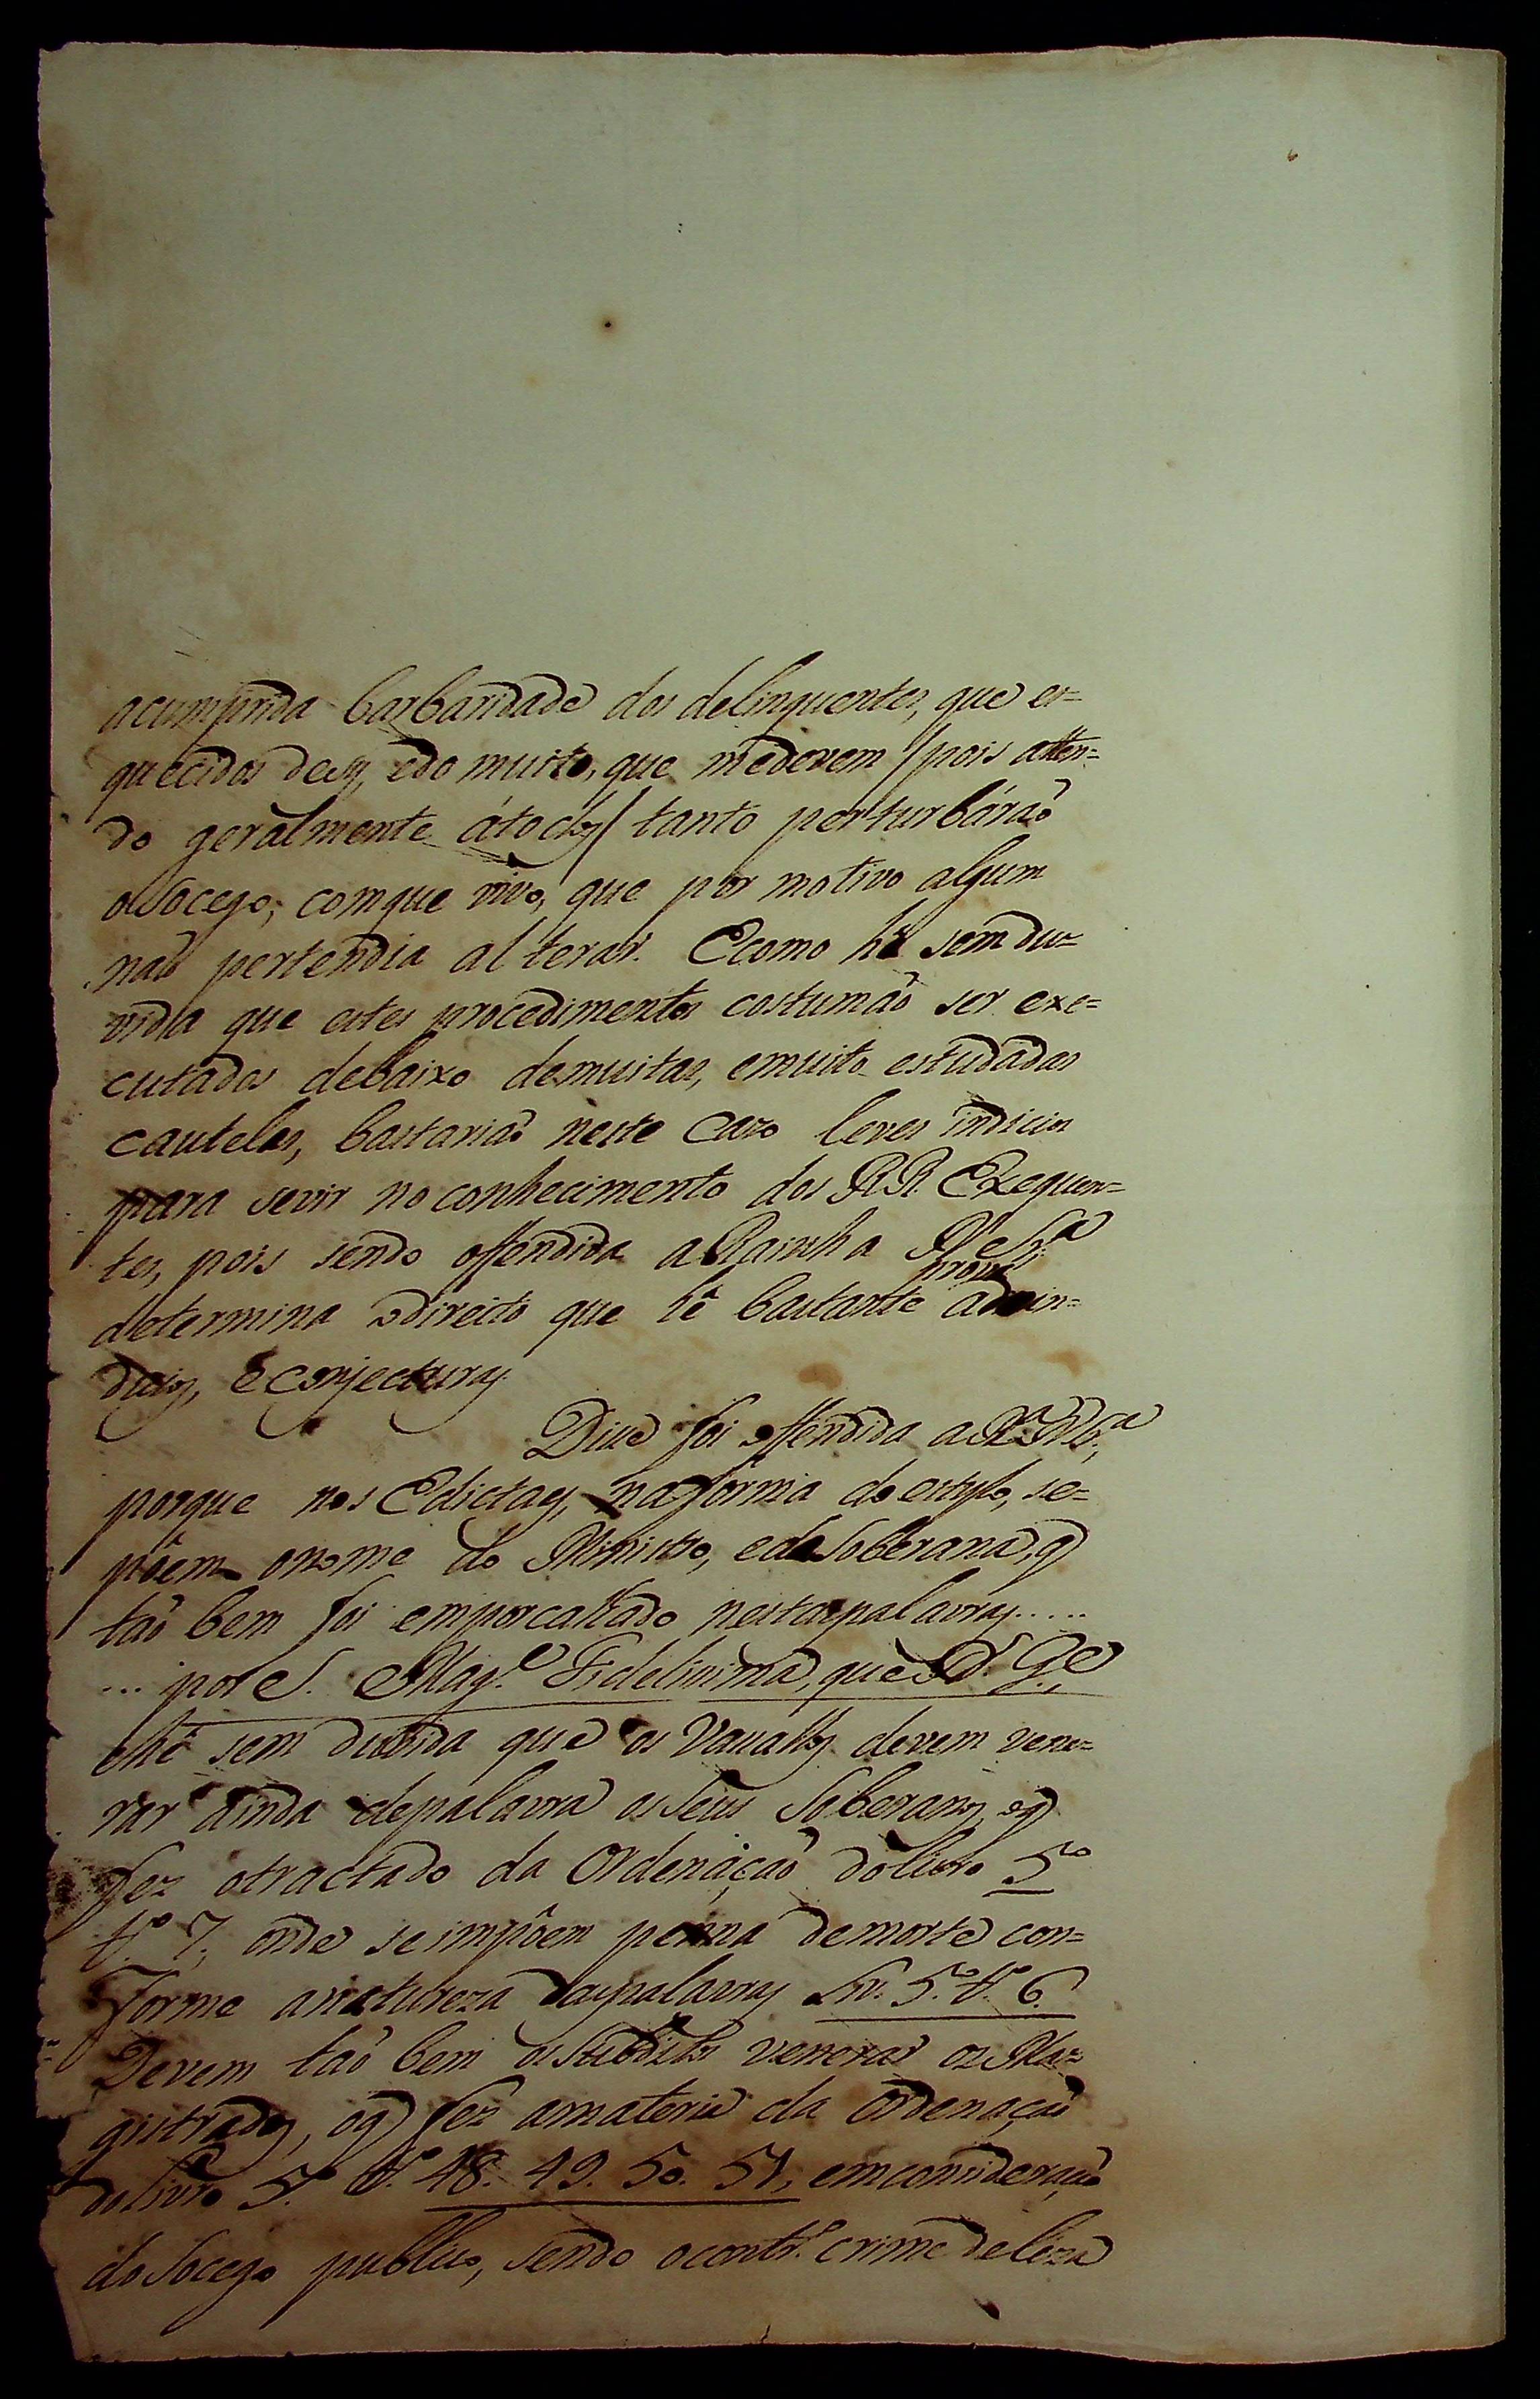 acumprida barbaridade dos delinquentes, que es=
quecidos de sy, edo muito, que medevem / pois atten=
do geralmente átodos / tanto perturbáraõ
oSocego, comque vivo, que por motivo algum
naõ pertendia alterar. Ecomo hê semdu=
vida que estes procedimentos costumaõ ser exe=
cutados debaixo demuitas, emuito estudadas
cautelas, bastariaõ neste Cazo leves indicios
para sevir noconhecimento dos RR. Exequen=
tes, pois sendo offendida aRainha N. Sr.ª
determina odireito que hê bastante aprova in=
dicios, e conjecturas.
Dice foi offendida aR.ª N. Sr.ª,
porque nos Edictaes, naforma do estylo, se=
põem onome do Ministro, eda Soberana, q
taõ bem foi emporcalhado nestaspalavras.....
... por S. Mag.e Fidelissima, que D.s G.e,
ehê sem duvida que os Vassallos devem vene=
rar ainda depalavra osSeus Soberanos, oq
fez otractado da Ordenaçaõ doLivro 5º
tº. 7, onde seimpõem penna demorte con=
forme anatureza daspalavras Lv. 5.º tº. 6.
Devem taõ bem osSubditos venerar os Ma=
gistrados, oq fez amateria da Ordenaçaõ
doLivro 5.º tº. 48. 49. 50. 51, emconsideraçaõ
doSocego publico, sendo ocontr.º crime deleza